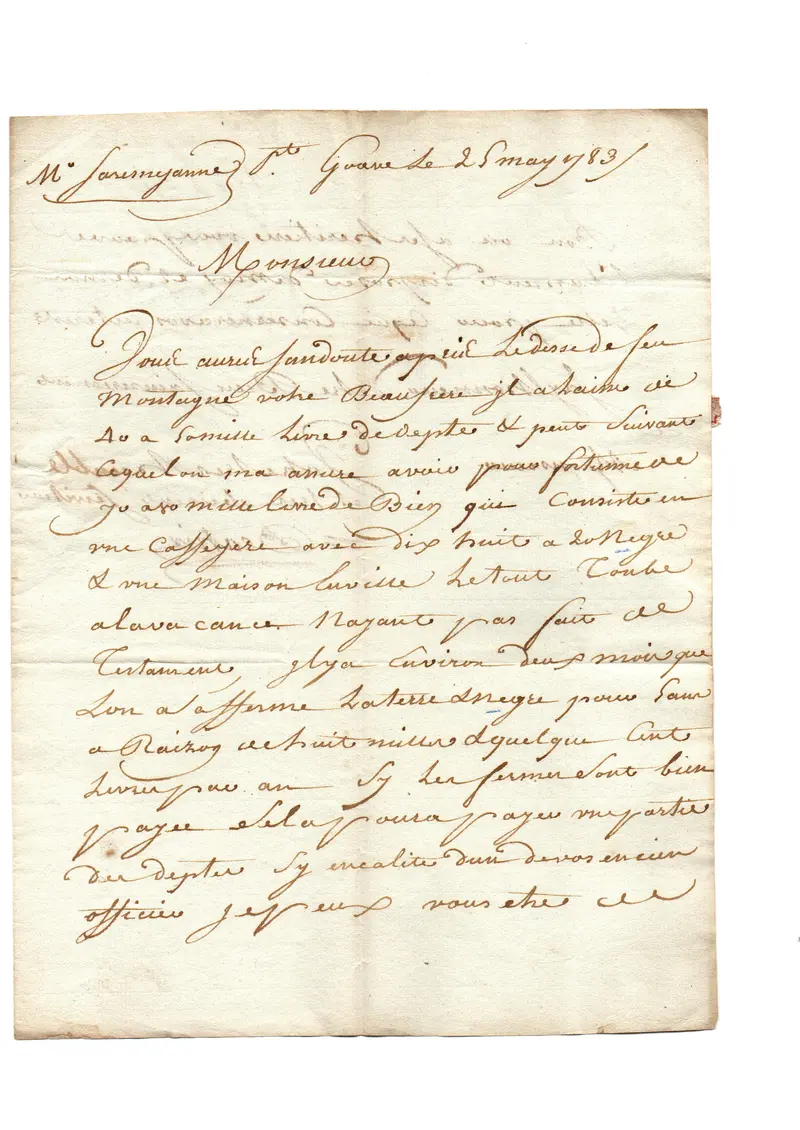 Mr Laremejanne Pt Goave Le 25 may 1783
Monsieur
Vous aurés sandoute apris Le desse de feu
Montagne votre Beaufrere jl a Laissé de
40 a 50 mille Livre de depte & peut suivant
cequelon ma assuré avoir pour fortune de
70 a 80 mille Livre de Bien qui Consiste en
une Caffeyere avec dix huit a 20 Negre
& une Maison Enville Le tout Tombe
a la vacance Nayant pas fait de
Testament, jl ya Environ deux mois que
Lon a afferme La terre & Negre pour 5 ans
a Raizon de huit mille & quelque Cent
Livres par an Sy Les fermes sont bien
payee Sela poura payer une partie
des deptes Sy en calité dun de vos encien
officier je peux vous etre de